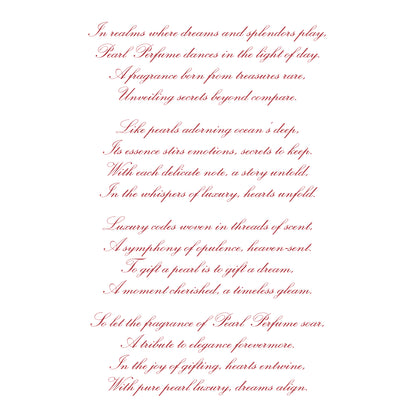 In realms where dreams and splendors play,
Pearl Perfume dances in the light of day.
A fragrance born from treasures rare,
Unveiling secrets beyond compare.
Like pearls adorning ocean's deep,
Its essence stirs emotions, secrets to keep.
With each delicate note, a story untold,
In the whispers of luxury, hearts unfold.
Luxury codes woven in threads of scent,
A symphony of opulence, heaven-sent.
To gift a pearl is to gift a dream,
A moment cherished, a timeless gleam.
So let the fragrance of Pearl Perfume soar,
A tribute to elegance forevermore.
In the joy of gifting, hearts entwine,
With pure pearl luxury, dreams align.